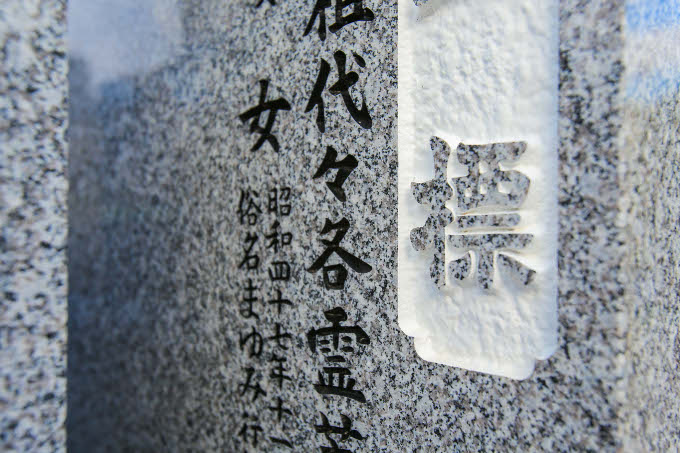 標
祖代々各霊
女
昭和四十七年十一
俗名まゆみ行